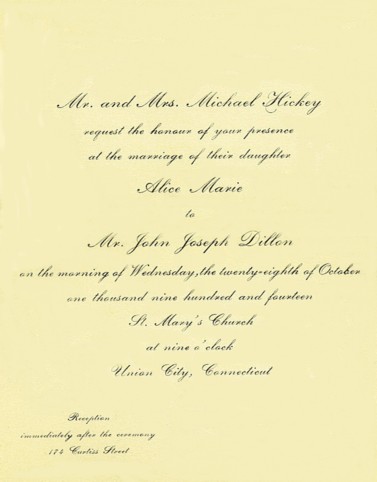 Mr. and Mrs. Michael Hickey
request the honour of your presence
at the marriage of their daughter
Alice Marie
to
Mr. John Joseph Dillon
on the morning of Wednesday, the twenty-eighth of October
one thousand nine hundred and fourteen
St. Mary's Church
at nine o'clock
Union City, Connecticut
Reception
immediately after the ceremony
174 Curtiss Street